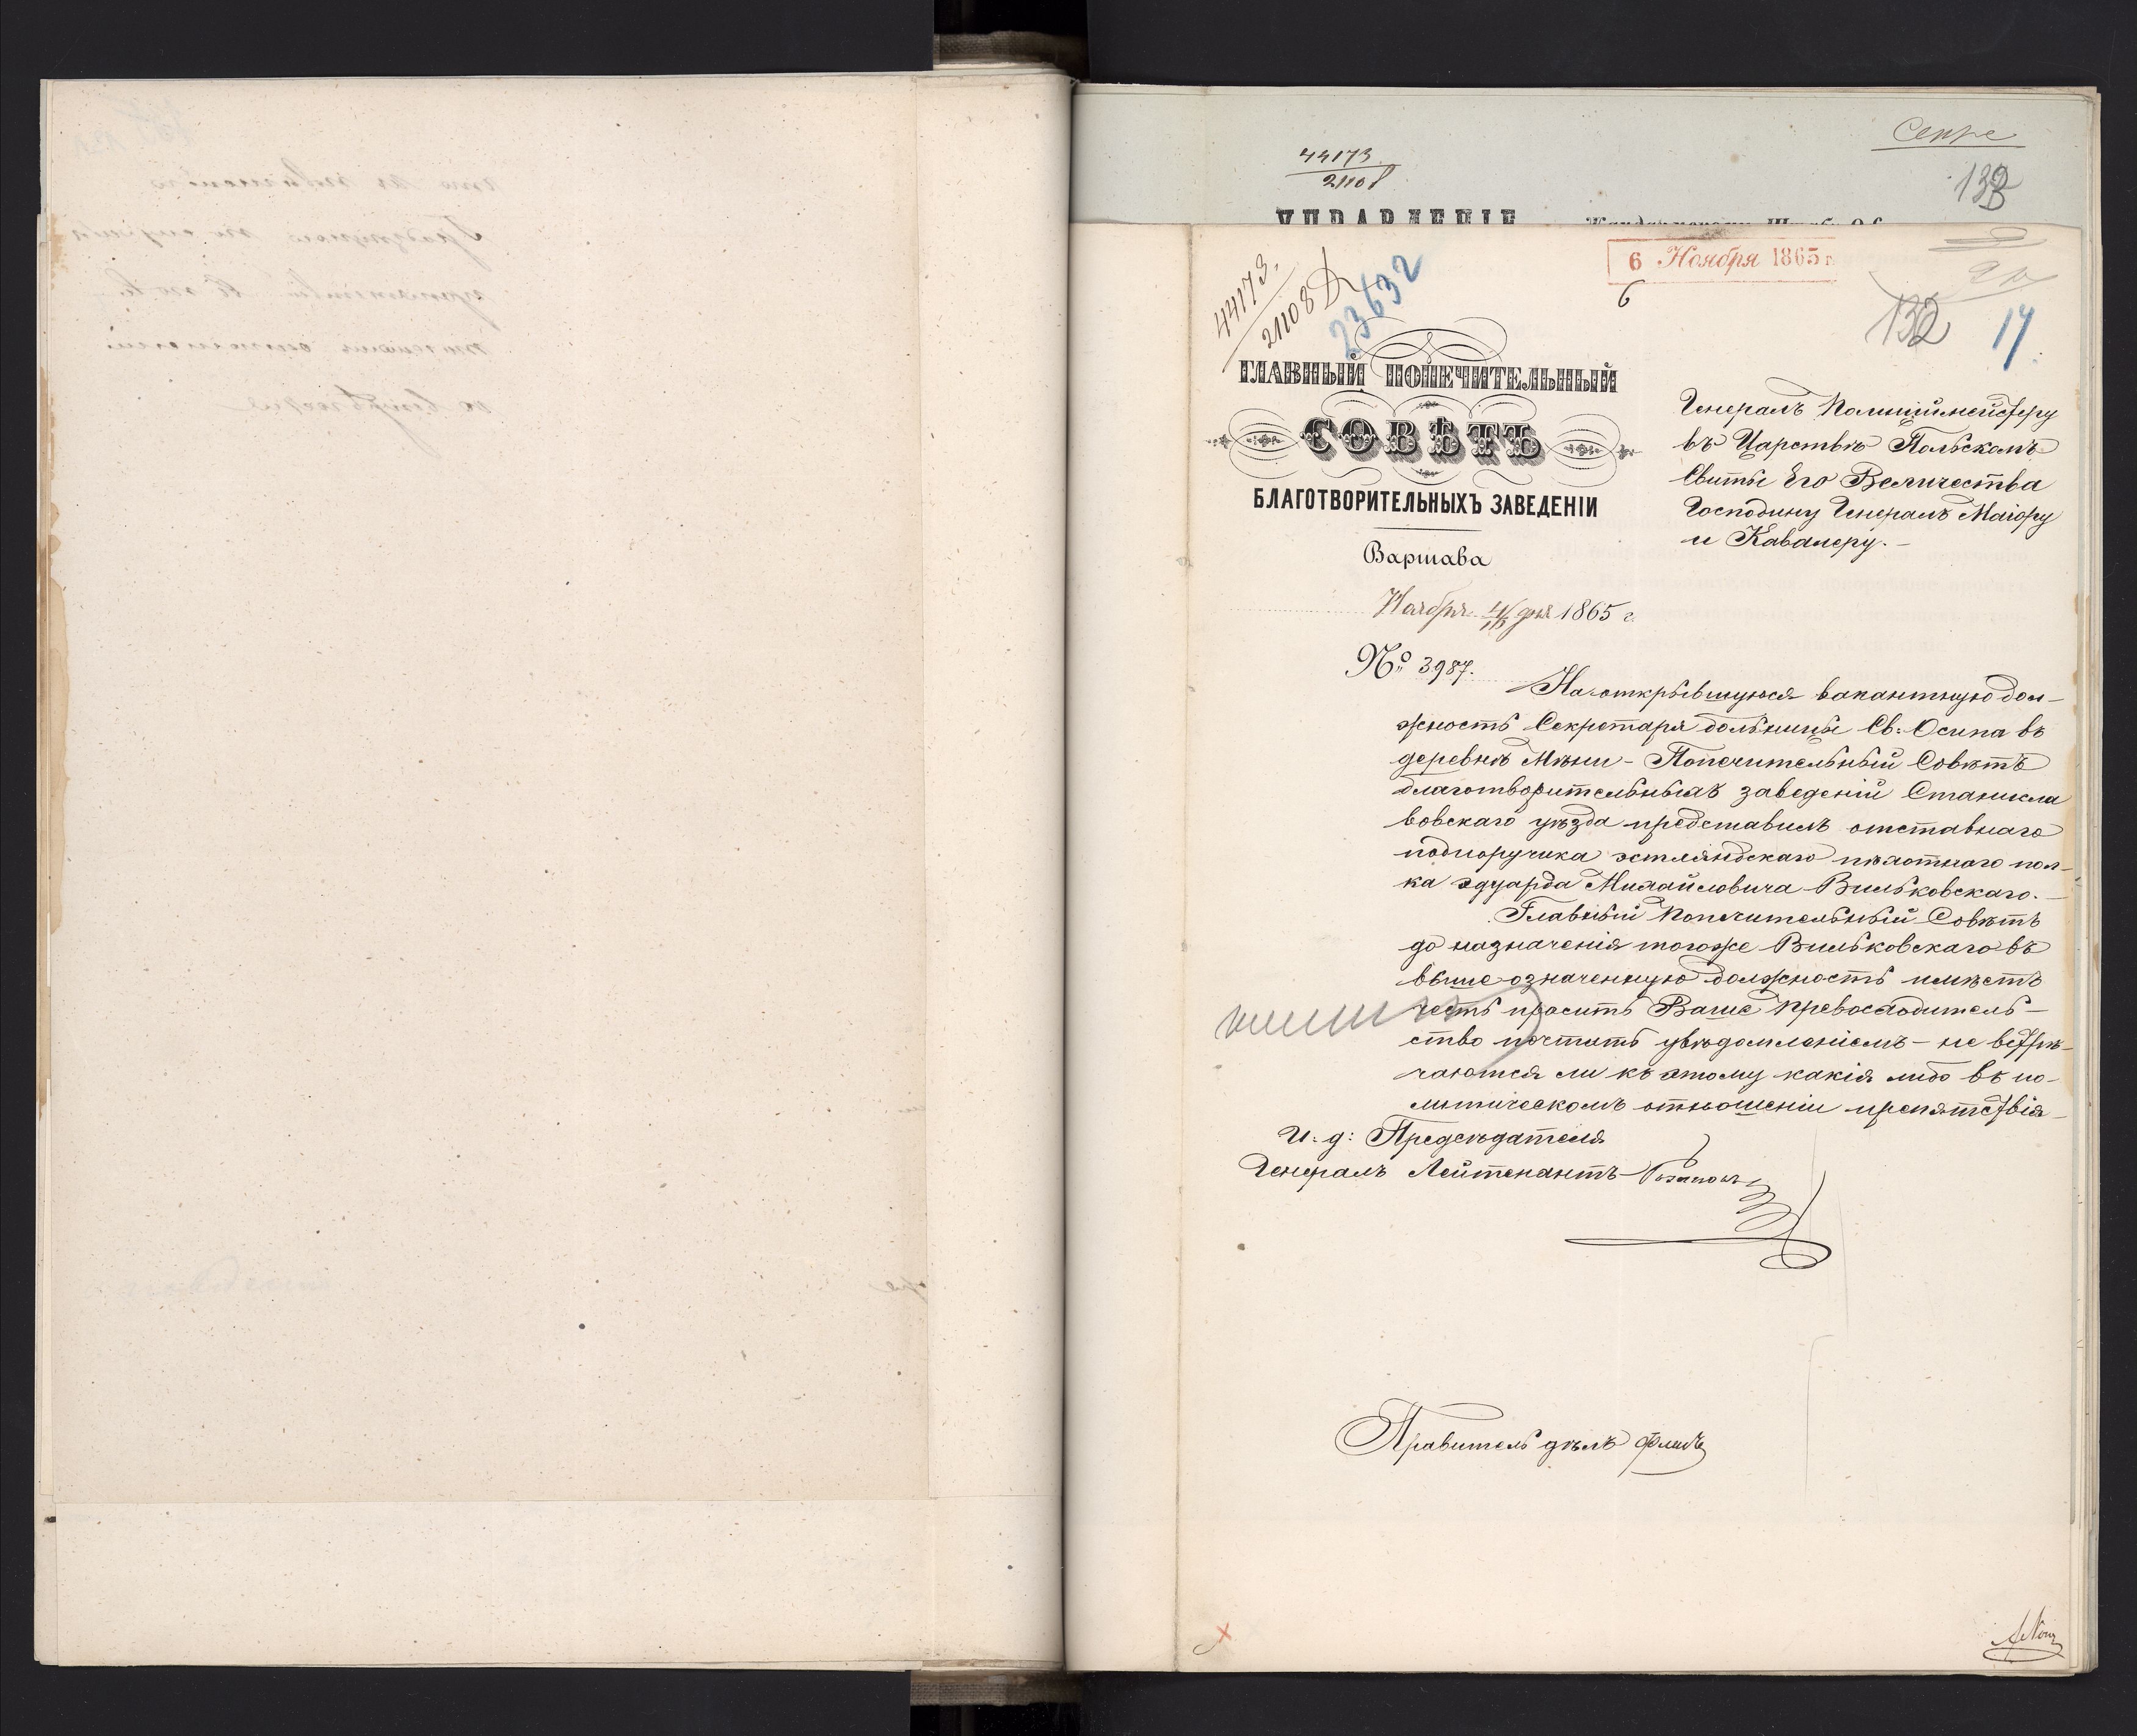 44173
21108
132
УПРАВЛЕНІЕ
6 Ноября 1865 г.
6
44173.
21108
23632
132
17
ГЛАВНЫЙ ПОПЕЧИТЕЛЬНЫЙ
СОВѢТЪ
БЛАГОТВОРИТЕЛЬНЫХЪ ЗАВЕДЕНІИ
Варшава
Ноября 4/16 дня 1865 г.
№ 3987.
Генералъ Полиціймейстеру
въ Царствѣ Польскомъ
Свиты Его Величества
Господину Генералъ Маіору
и Кавалеру.-
На открывшуюся вакантную дол-
жность Секретаря больницы Св: Осипа въ
деревнѣ Мѣни - Попечительный Совѣтъ
благотворительныхъ заведеній Станисла
вовскаго уѣзда представилъ отставнаго
подпоручика эстляндскаго пѣхотнаго пол-
ка Эдуарда Михайловича Вильковскаго.-
Главный Попечительный Совѣтъ
до назначенія тогоже Вильковскаго въ
выше означенную должность имѣетъ
честь просить Ваше Превосходитель-
ство почтить увѣдомленіемъ - не встрѣ-
чаются ли къ этому какія либо въ по-
литическомъ отношеніи препятствія-
И. д: Предсѣдателя
Генералъ Лейтенантъ
Правитель дѣлъ